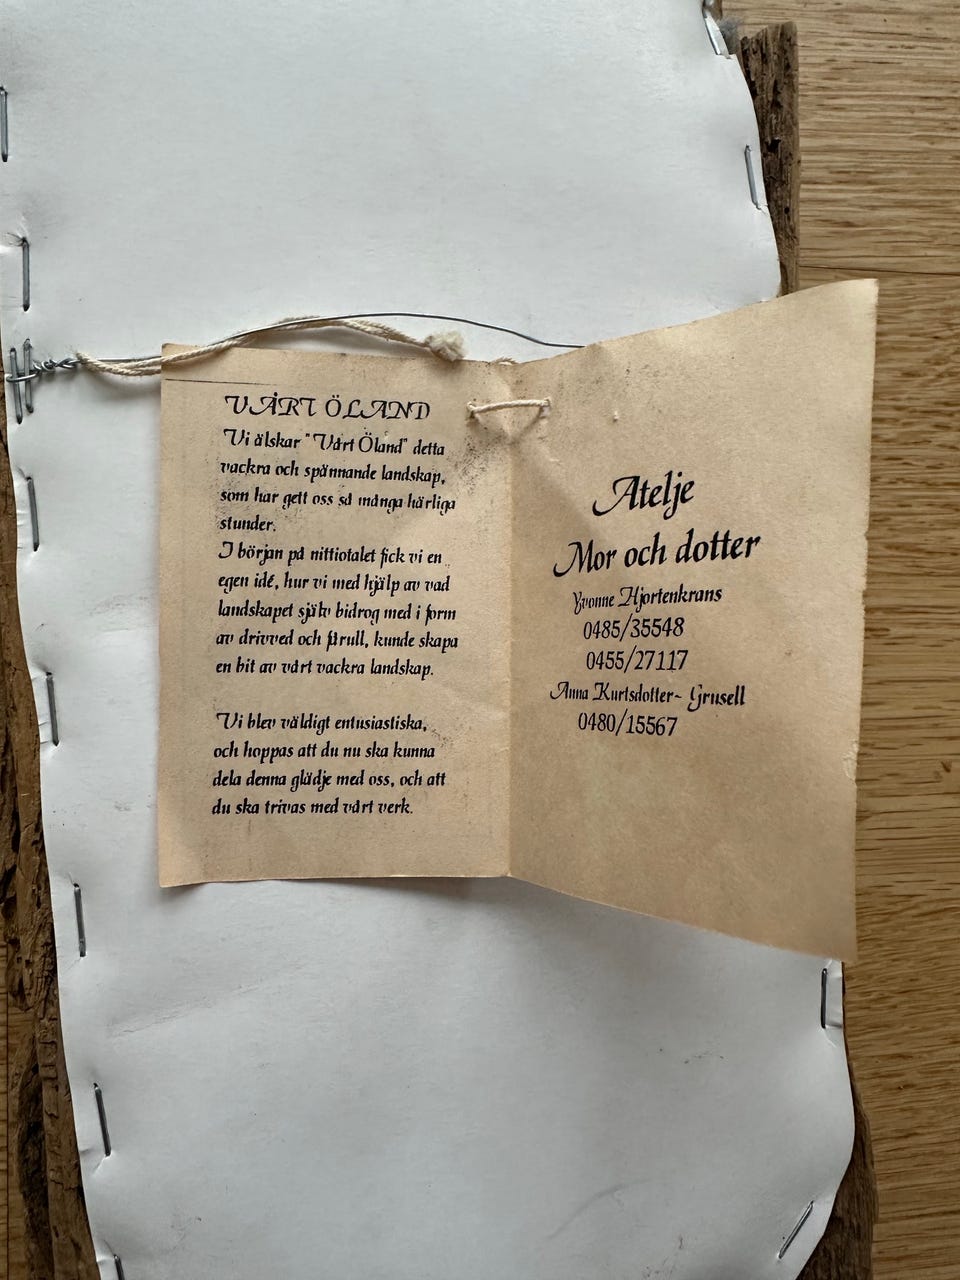 VÅRT ÖLAND
Vi älskar "Vårt Öland" detta
vackra och spännande landskap,
som har gett oss så många härliga
stunder.
I början på nittiotalet fick vi en
egen idé, hur vi med hjälp av vad
landskapet själv bidrog med i form
av drivved och fårull, kunde skapa
en bit av vårt vackra landskap.
Vi blev väldigt entusiastiska,
och hoppas att du nu ska kunna
dela denna glädje med oss, och att
du ska trivas med vårt verk.
Atelje
Mor och dotter
Yvonne Hjortenkrans
0485/35548
0455/27117
Anna Kurtsdotter- Grusell
0480/15567